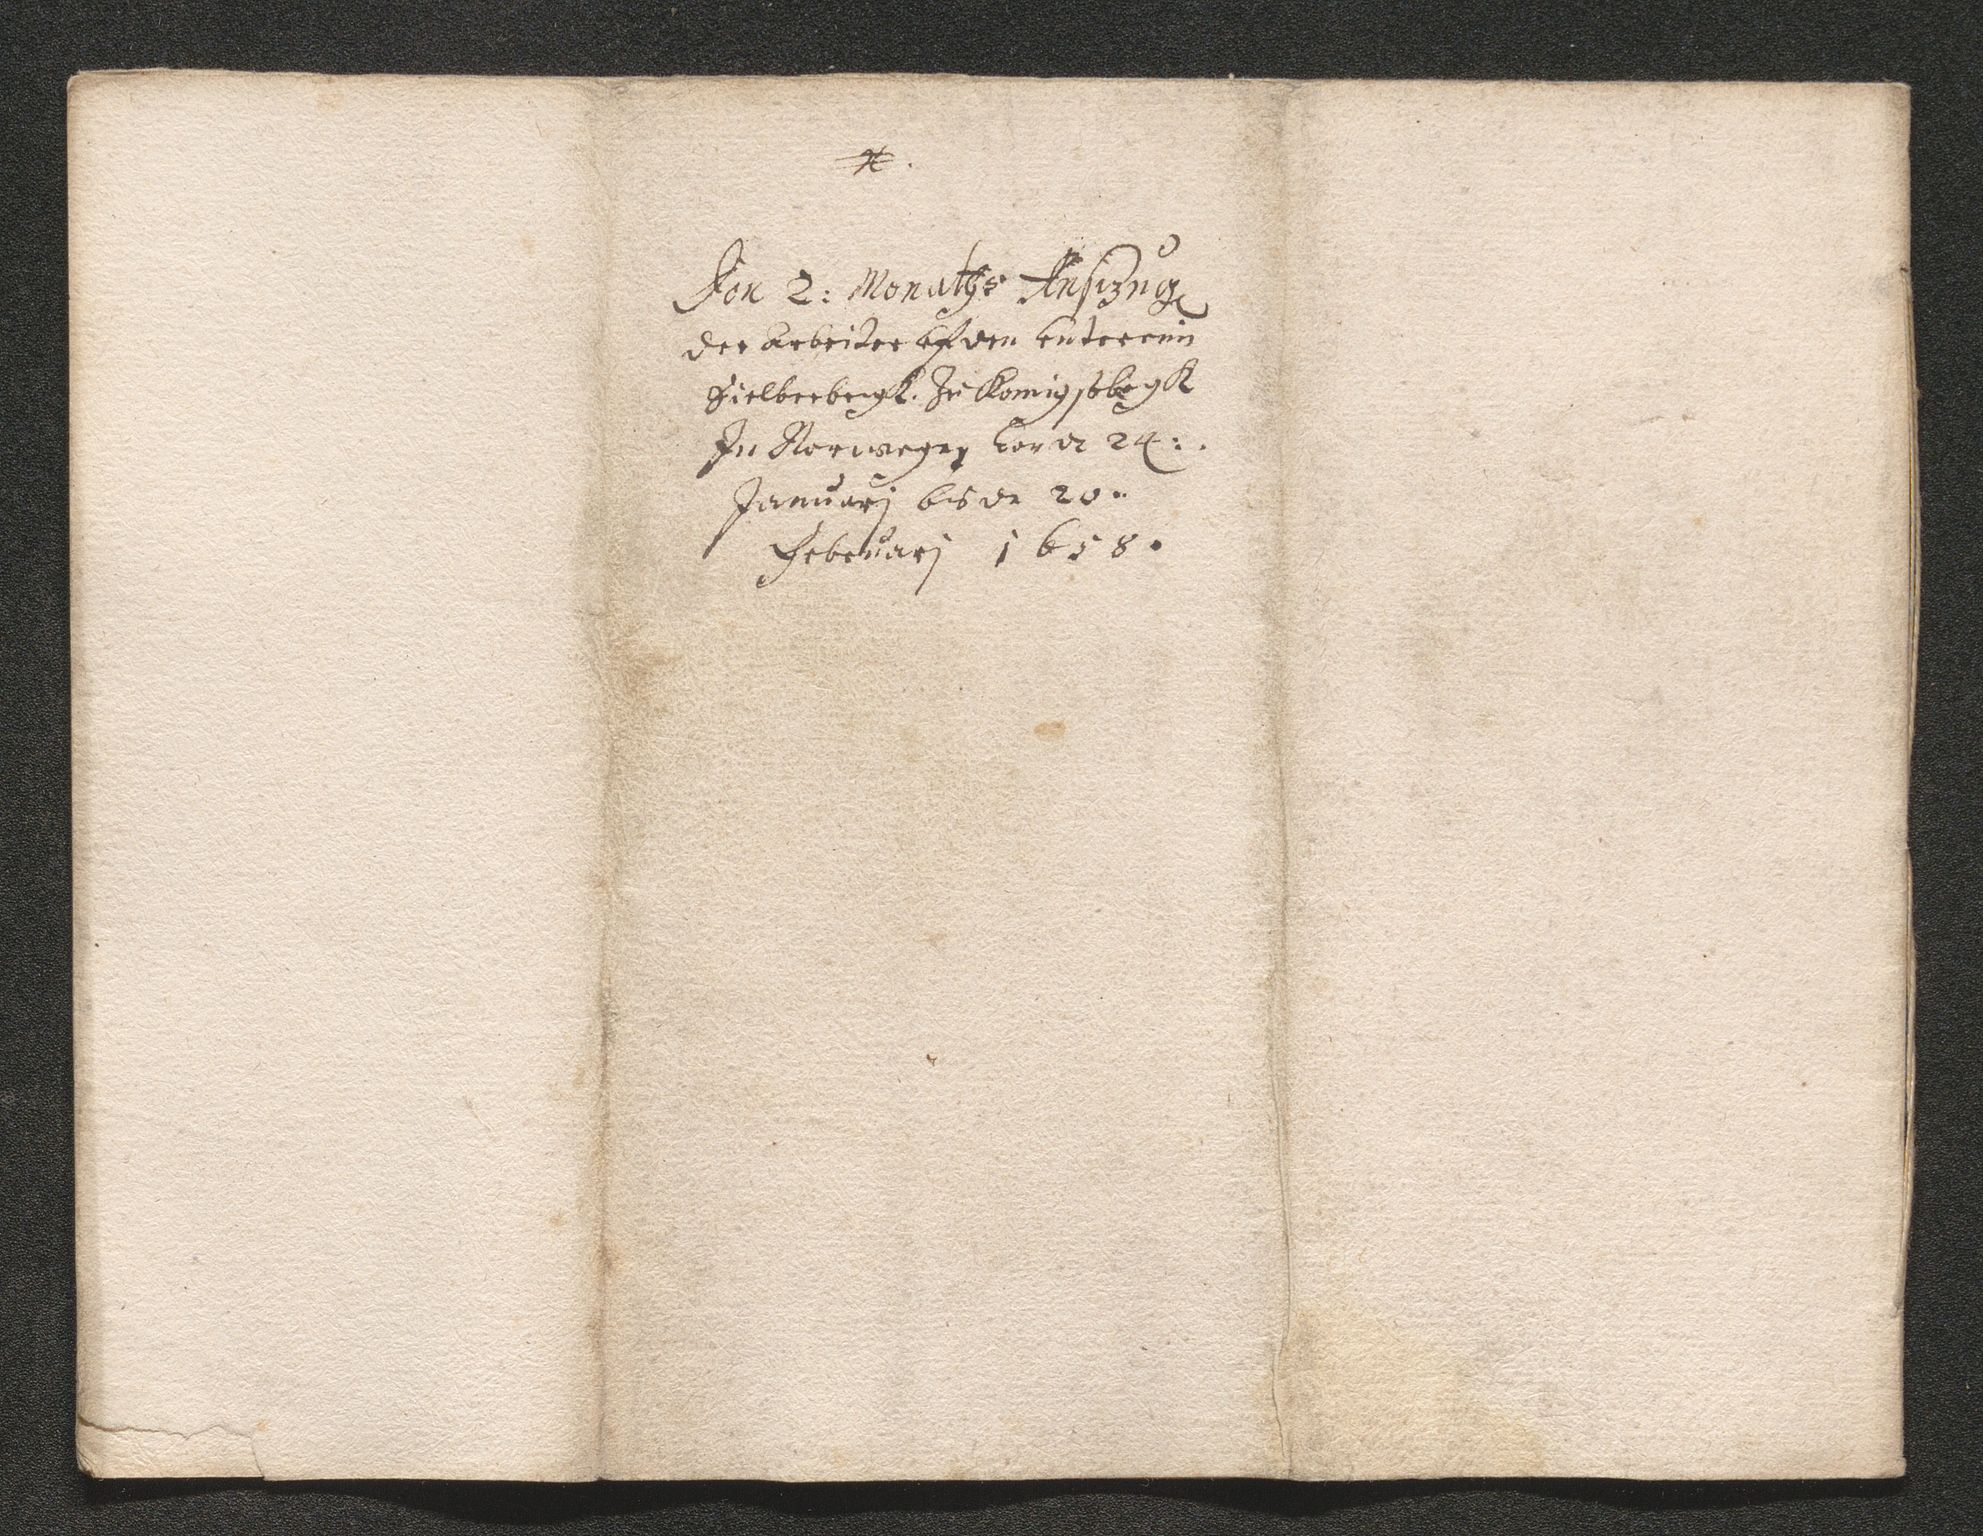 Den 2: Monaths Auszug
der Arbeiter auf den
Sielberbergk. Zu Konigsbergk
In Norwegen von de 24:
Januarj bis de 20.
Februarj 1658.